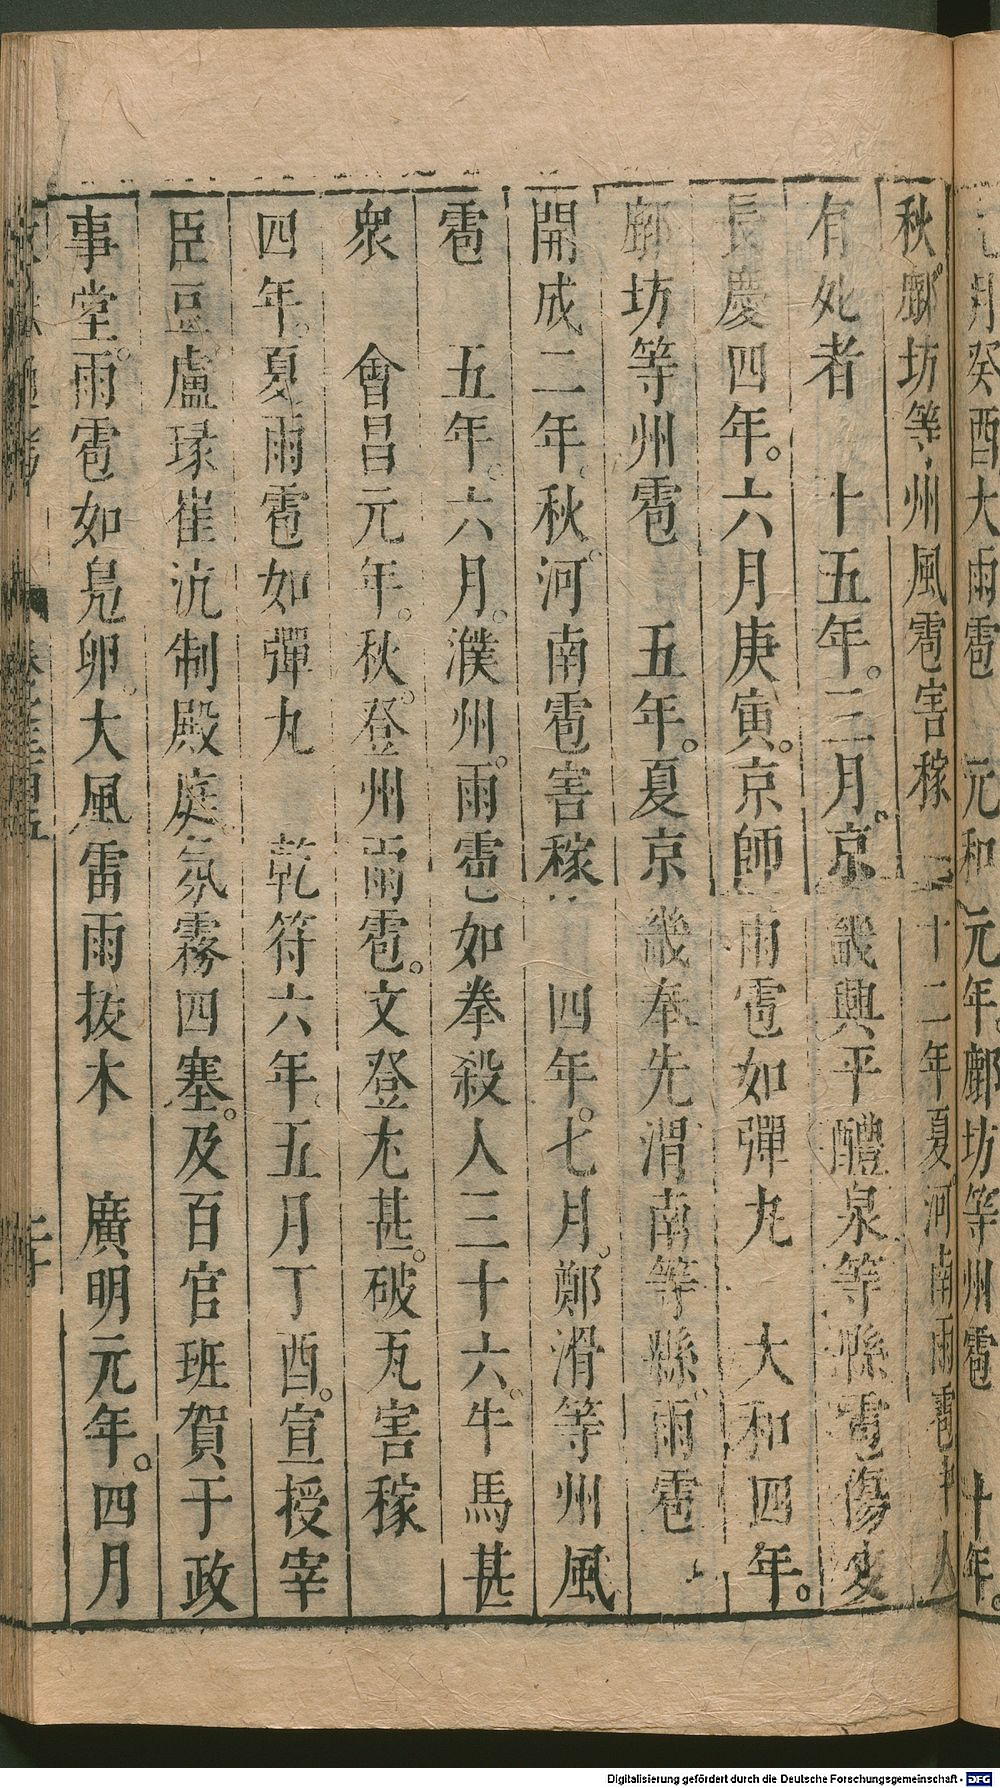 元和元年。鄜坊等州雹 十年。
秋。鄜坊等州風雹害稼 十二年夏。河南雨雹中人
有死者 十五年。三月。京畿興平醴泉等縣雹傷麦
長慶四年。六月庚寅。京師雨雹如彈丸 大和四年。
鄜坊等州雹 五年。夏京畿奉先渭南等縣。雨雹
開成二年。秋。河南雹害稼 四年。七月。鄭滑等州風
雹 五年。六月。濮州。雨雹如拳殺人三十六。牛馬甚
衆 會昌元年。秋。登州雨雹。文登尤甚。破瓦害稼
四年。夏雨雹如彈丸 乾符六年。五月丁酉。宣授宰
臣豆盧瑑崔沆制殿庭。氛霧四塞。及百官班賀于政
事堂。雨雹如鳧卵。大風雷雨拔木 廣明元年。四月
Digitalisierung gefördert durch die Deutsche Forschungsgemeinschaft - DFG